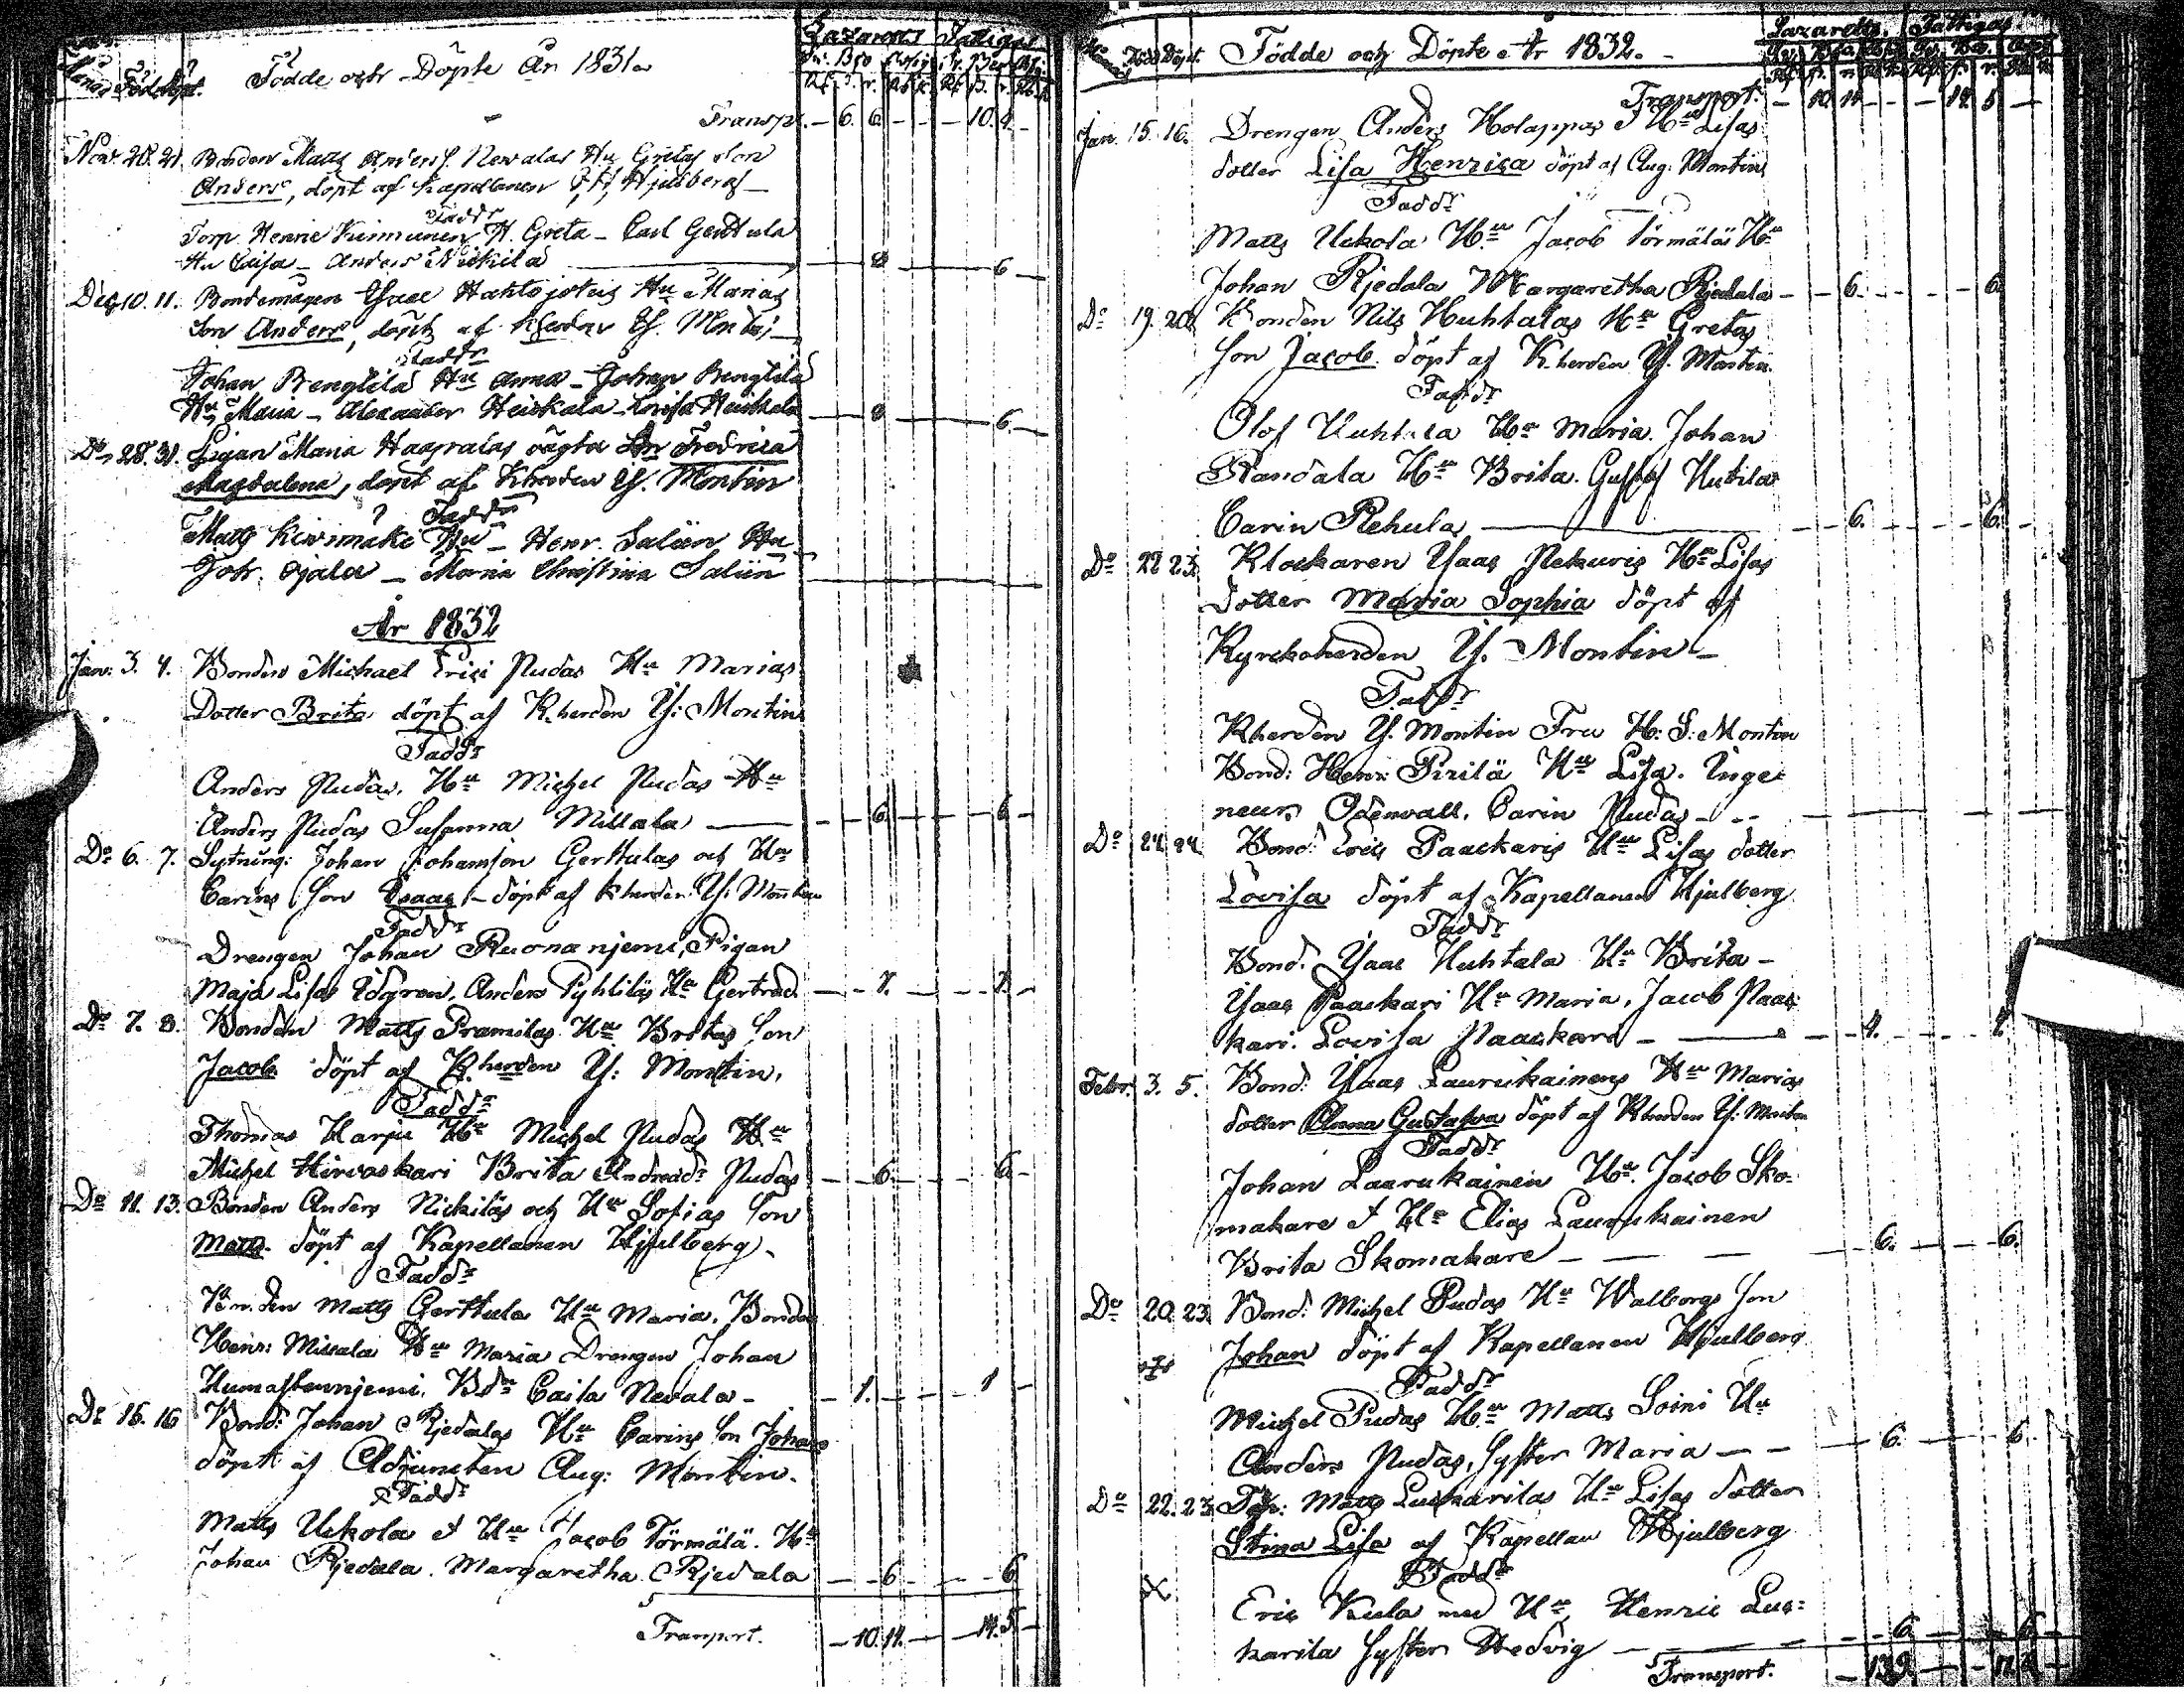 Födde och Döpte År 1831.
Lazarett Fattigas
Född Döpt.
Transp. — 6. 6. — — — 10. 4. —
Nov. 20. 21. Bonden Matts Anders. Nevalas Hu Gretas son
Anders, döpt af Kapellanen Hjulberg —
Faddr
Torp. Henric Kinnunen H. Greta — Carl Gerttula
Hu Caisa — Anders Nickilä — 6 —
Dec. 10. 11. Bondemågen Isaac Hu Marias
Son Anders, döpt af Kherden Is. Montin —
Faddr
Johan Rengtilä Hu Anna — Johan Rengtilä
Hu Maria — Alexander Heickala — Lovisa Heickala — 6. —
Do 28. 31. Pigan Maria Haapalas oägta Fredrica
Magdalena, döpt af Kherden Is. Montin
Faddr
Matts Kivimäki Hu — Henr. Salén Hu
Joh. Ojala — Maria Christina Salén
År 1832
Jan: 3. 4. Bonden Michael Erici Pudas Hu Marias
Dotter Brita döpt af K.herden Is: Montin
Faddr
Anders Pudas, Hu Michel Pudas Hu
Anders Pudas Susanna Millala — — 6. — — 6 —
Do 6. 7. Sytning: Johan Johansson Gerttulas och Hu
Carins Son Isaac — döpt af Kherden Is: Montin
Faddr
Drengen Johan Ruonanjemi, Pigan
Maja Lisa Edgren, Anders Pyhtilä Hu Gertrud. — 7. — — 7. —
Do 7. 8. Bonden Matts Pramilas Hu Britas Son
Jacob döpt af K.herden Is: Montin.
Faddr
Thomas Harju Hu Michel Pudas Hu
Michel Hirvaskari Brita Andersdr Pudas — 6. — — 6. —
Do 11. 13. Bonden Anders Nickiläs och Hu Sofias Son
Matts. döpt af Kapellanen Hjulberg.
Faddr
Bonden Matts Gerttula Hu Maria. Bonden
Henr: Missala Hu Maria Drengen Johan
Humastennjemi. Caisa Nevala — — 1. — — 1 —
Do 15. 16 Bond: Johan Rjedalas Hu Carins Son Johan
döpt af Adjuncten Aug: Montin.
Faddr
Matts Uckola et Hu Jacob Törmälä. Hu
Johan Rjedala. Margaretha Rjedala — — 6 — — 6
Transport. — 10. 11. — — 14. 5. —
Född Döpt. Födde och Döpte År 1832. —
Lazaretts. Fattigas
Transport. — 10. 11. — — — 14. 5. —
Jan. 15. 16. Drengen Anders Holappas et Hu Lisas
dotter Lisa Henrica döpt af Aug: Montin
Faddr
Matts Uckola Hu Jacob Törmäläs Hu
Johan Rjedala Margaretha Rjedala — — 6. — — — 6.
Do 19. 20. Bonden Nils Huhtalas Hu Gretas
Son Jacob. döpt af K.herden Is. Montin.
Faddr
Olof Huhtala Hu Maria. Johan
Randala Hu Brita. Gustaf Hutila
Carin Rehula — — 6. — — 6. —
Do 22 23. Klockaren Isaac Hu Lisas
Dotter Maria Sophia döpt af
Kyrckoherden Is. Montin —
Faddr
Kherden Is. Montin Fru H: S: Montin
Bond: Henr: Pirilä Hu Lisa. Inge-
neur Odenvall. Carin Pudas — — —
Do 24 24. Bond: Eric Paackaris Hu Lisas dotter
Lovisa döpt af Kapellanen Hjulberg
Faddr
Bond: Isaac Huhtala Hu Brita —
Isaac Paackari Hu Maria. Jacob Paac-
kari. Lovisa Paackari — — — 4. —
Febr. 3. 5. Bond: Isaac Laurukainens Hu Marias
dotter Anna Gustafva döpt af Kherden Is: Montin
Faddr
Johan Laurukainen Hu. Jacob Sko-
makare et Hu Elias Laurukainen
Brita Skomakare — — — — 6. — — 6.
Do 20. 23. Bond: Michel Pudas Hu Walborgs Son
Johan döpt af Kapellanen Hjulberg
Faddr
Michel Pudas Hu Matts Soini Hu
Anders Pudas, Syster Maria — — — 6. — — 6.
Do 22. 23. Torp: Matts Luckarilas Hu Lisas dotter
Stina Lisa af Kapellan Hjulberg
Faddr
Eric Kula med Hu, Henric Luc-
karila Syster Hedvig — — — 6. — — 6.
Transport. — 13. 9. — —